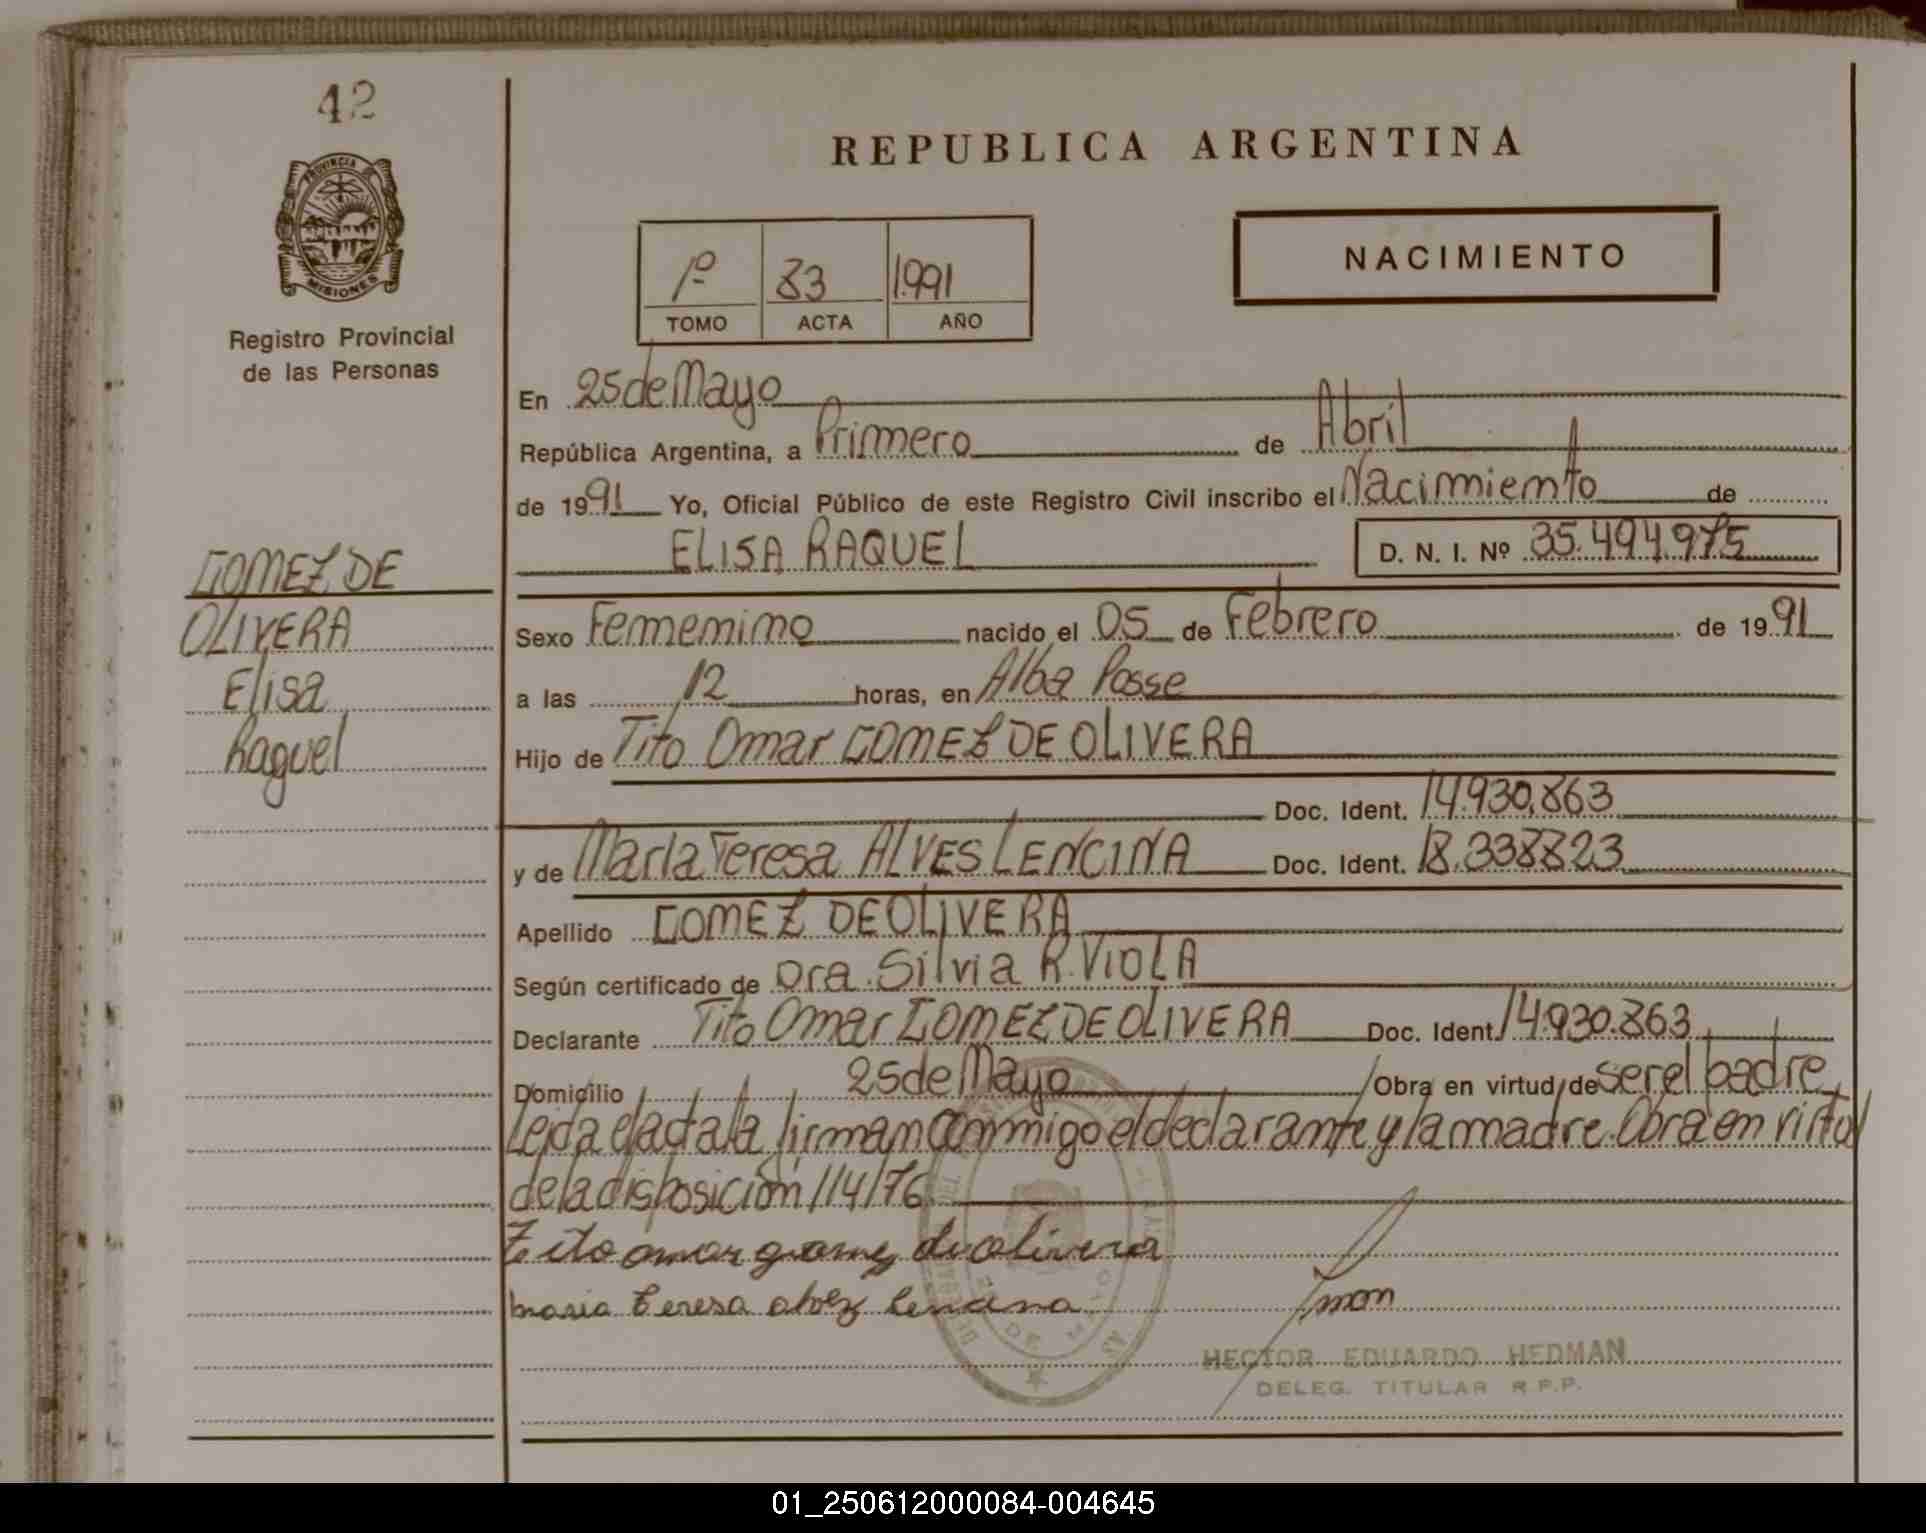 42
PROVINCIA DE
MISIONES
Registro Provincial
de las Personas
REPUBLICA ARGENTINA
NACIMIENTO
1º 83 1991
TOMO ACTA AÑO
En 25 de Mayo
República Argentina, a Primero de Abril
de 1991 Yo, Oficial Público de este Registro Civil inscribo el Nacimiento de
ELISA RAQUEL D. N. I. Nº 35.494.975
GOMEZ DE
OLIVERA
Elisa
Raquel
Sexo Femenino nacido el 05 de Febrero de 1991
a las 12 horas, en Alba Posse
Hijo de Tito Omar GOMEZ DE OLIVERA
Doc. Ident. 14.930.863
y de María Teresa ALVES LENCINA Doc. Ident. 18.338823
Apellido GOMEZ DE OLIVERA
Según certificado de Dra. Silvia R. VIOLA
Declarante Tito Omar GOMEZ DE OLIVERA Doc. Ident. 14.930.863
Domicilio 25 de Mayo Obra en virtud de ser el padre
Leida el acta la firman conmigo el declarante y la madre. Obra en virtud
de la disposición 114/76
Tito omar gomez de olivera
maria teresa alvez lencina
HECTOR EDUARDO HEDMAN
DELEG. TITULAR R.P.P.
01_250612000084-004645